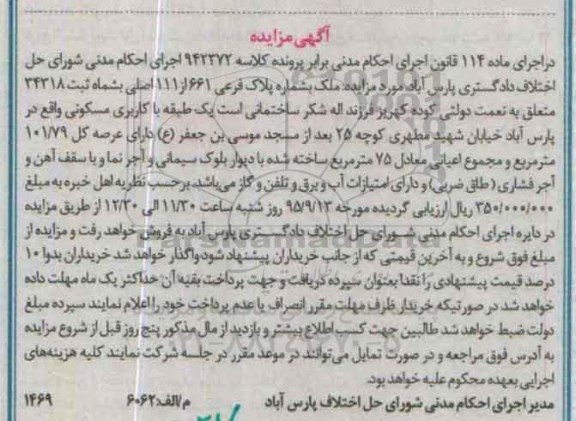 آگهی مزایده
دراجرای ماده ۱۱۴ قانون اجرای احکام مدنی برابر پرونده کلاسه ۹۴۲۳۷۲ اجرای احکام مدنی شورای حل
اختلاف دادگستری پارس آباد مورد مزایده: ملک بشماره پلاک فرعی ۶۶۱ از ۱۱۱ اصلی بشماه ثبت ۳۴۳۱۸
متعلق به نعمت دولتی کوده کهریز فرزند اله شکر ساختمانی است یک طبقه با کاربری مسکونی واقع در
پارس آباد خیابان شهید مطهری کوچه ۲۵ بعد از مسجد موسی بن جعفر (ع) دارای عرصه کل ۱۰۱/۷۹
مترمربع و مجموع اعیانی معادل ۷۵ مترمربع ساخته شده با دیوار بلوک سیمانی و آجر نما و با سقف آهن و
آجر فشاری (طاق ضربی) و دارای امتیازات آب و برق و تلفن و گاز می‌باشد. برحسب نظریه اهل خبره به مبلغ
۳۵۰/۰۰۰/۰۰۰ ریال ارزیابی گردیده مورخه ۹۵/۹/۱۳ روز شنبه ساعت ۱۱/۳۰ الی ۱۲/۳۰ از طریق مزایده
در دایره اجرای احکام مدنی شورای حل اختلاف دادگستری پارس آباد به فروش خواهد رفت و مزایده از
مبلغ فوق شروع و به آخرین قیمتی که از جانب خریداران پیشنهاد شود واگذار خواهد شد خریداران بدوا ۱۰
درصد قیمت پیشنهادی را نقدا بعنوان سپرده دریافت و جهت پرداخت بقیه آن حداکثر یک ماه مهلت داده
خواهد شد در صورتیکه خریدار ظرف مهلت مقرر انصراف یا عدم پرداخت خود را اعلام نمایند سپرده مبلغ
دولت ضبط خواهد شد طالبین جهت کسب اطلاع بیشتر و بازدید از مال مذکور پنج روز قبل از شروع مزایده
به آدرس فوق مراجعه و در صورت تمایل می‌توانند در موعد مقرر در جلسه شرکت نمایند کلیه هزینه‌های
اجرایی بعهده محکوم علیه خواهد بود.
مدیر اجرای احکام مدنی شورای حل اختلاف پارس آباد م/الف:۶۰۶۲ ۱۴۶۹